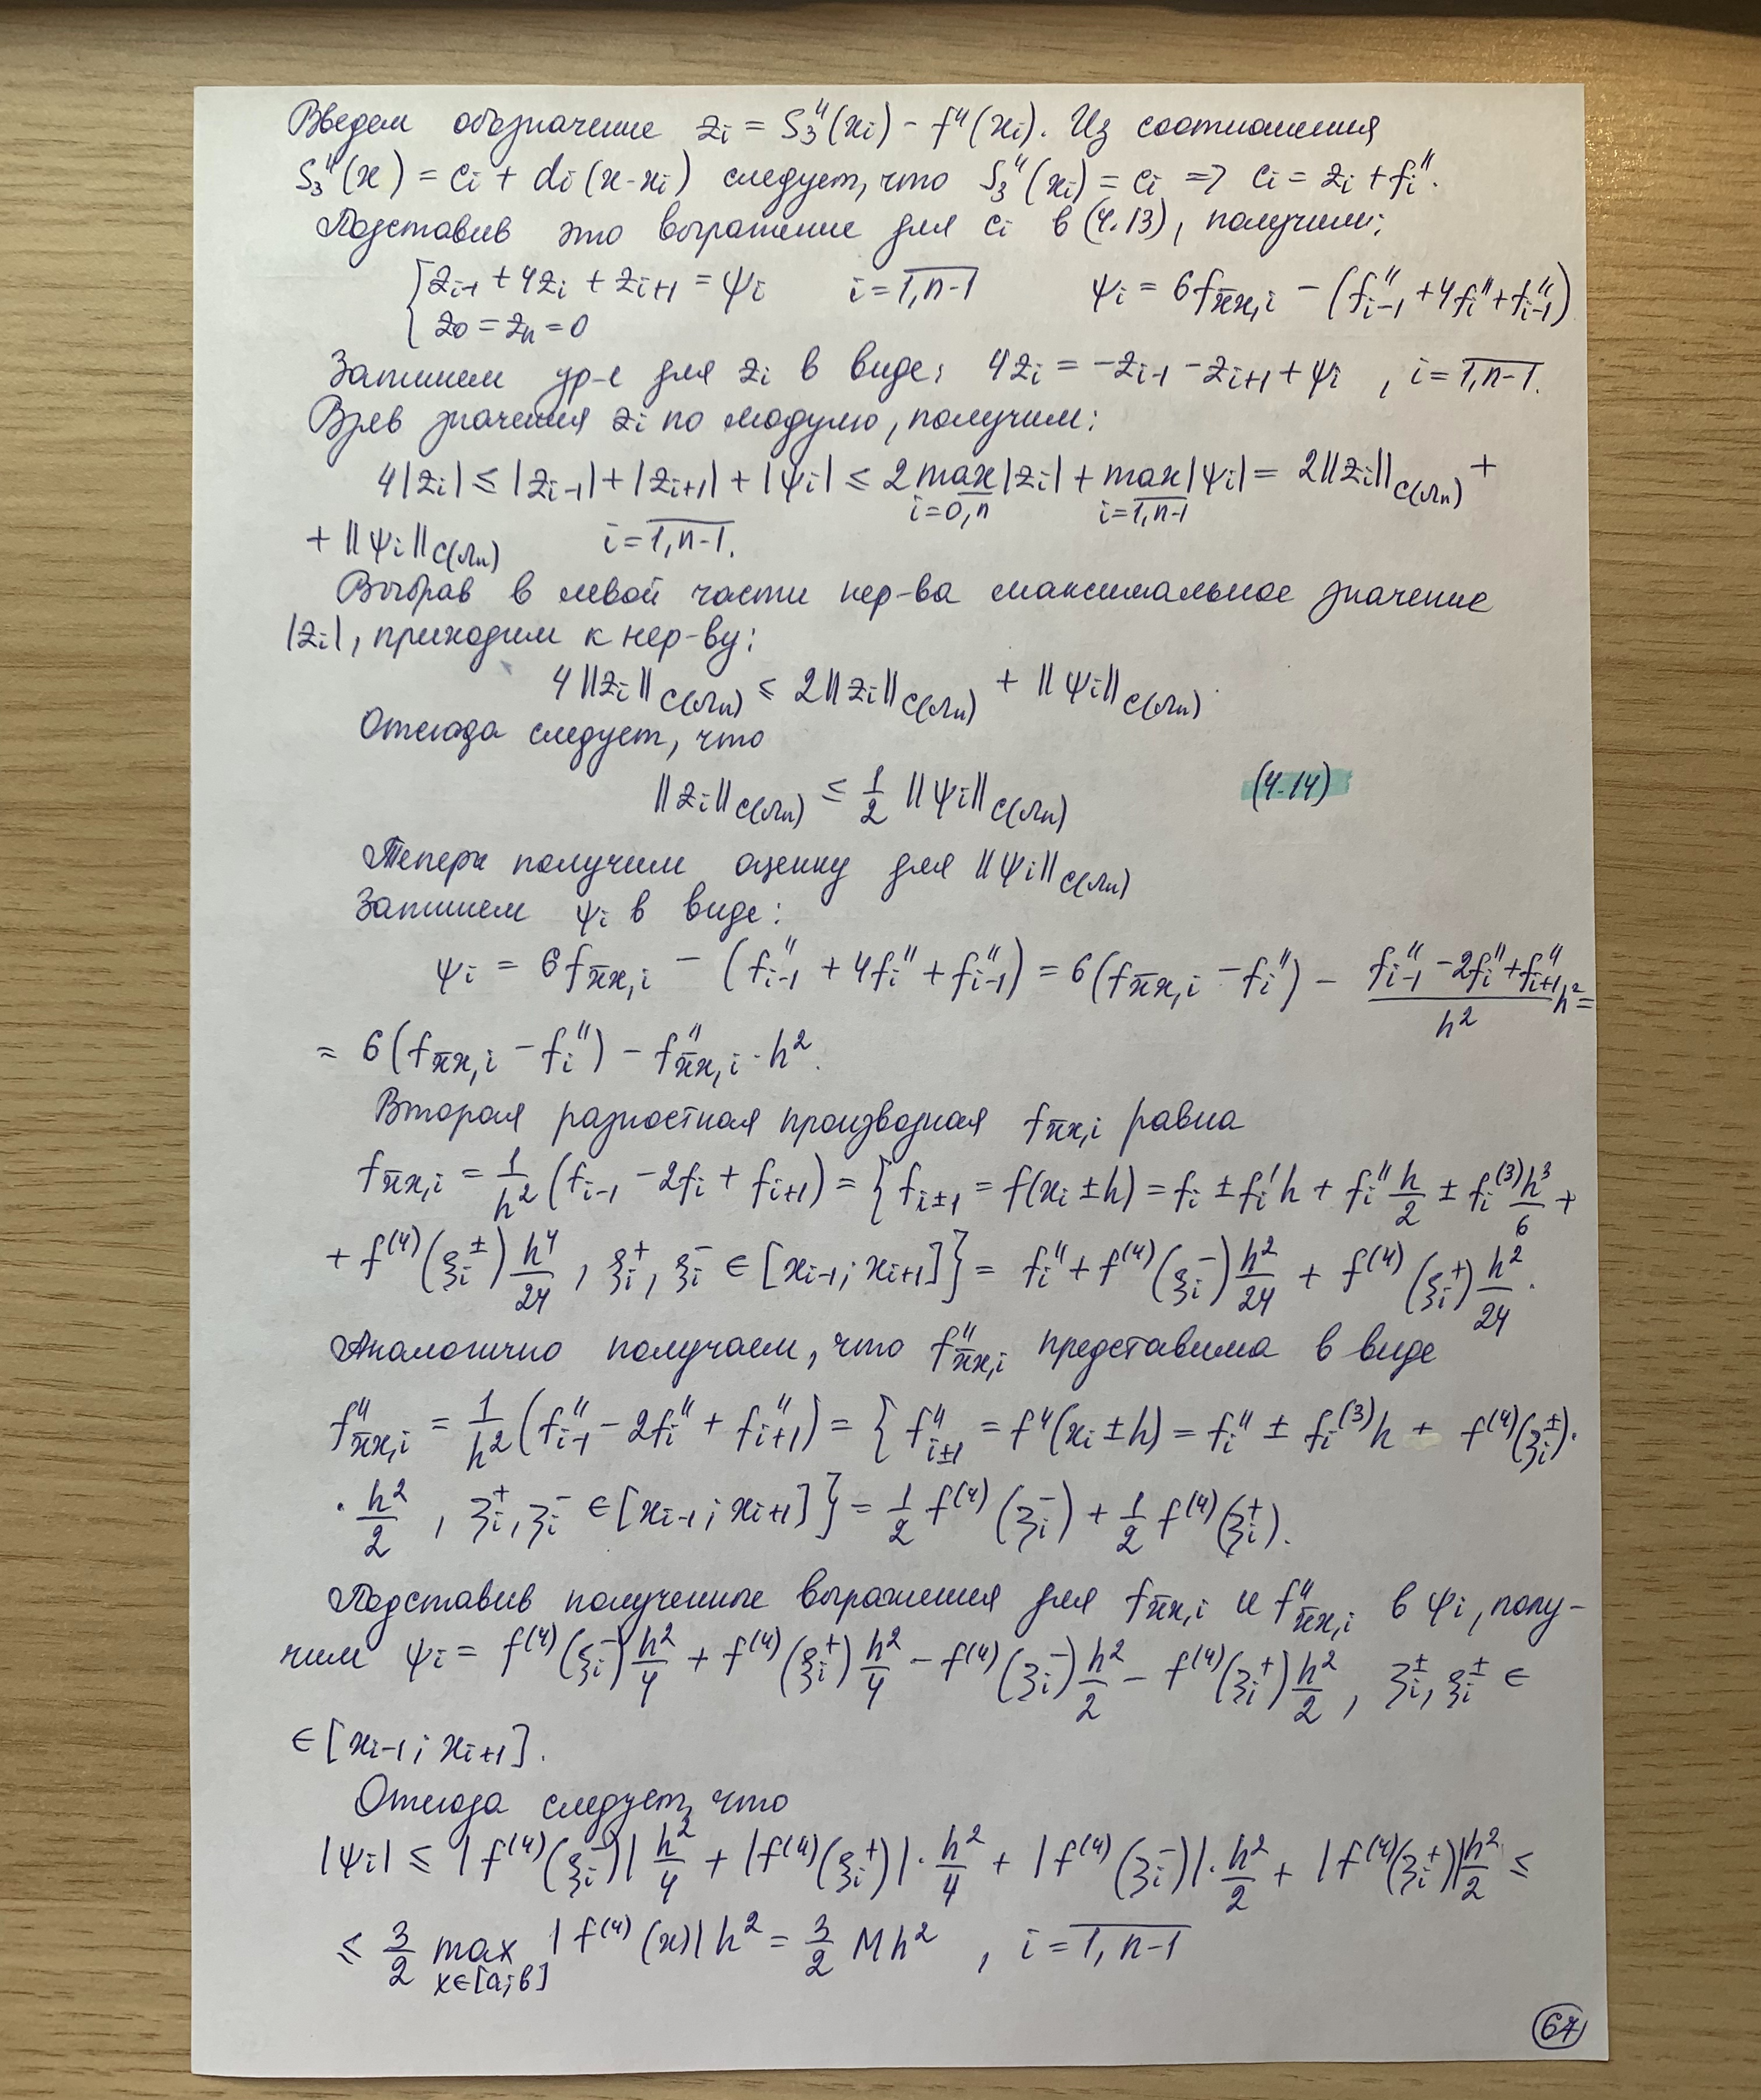 Введем обозначение zᵢ = S₃''(xᵢ) − f''(xᵢ). Из соотношения
S₃''(x) = cᵢ + dᵢ(x−xᵢ) следует, что S₃''(xᵢ) = cᵢ ⇒ cᵢ = zᵢ + fᵢ''.
Подставив это выражение для cᵢ в (4.13), получим:
{ zᵢ₋₁ + 4zᵢ + zᵢ₊₁ = ψᵢ i = \overline{1,n-1} ψᵢ = 6f_{x̄x,i} − (f''ᵢ₋₁ + 4fᵢ'' + f''ᵢ₋₁)
z₀ = zₙ = 0
Запишем ур-е для zᵢ в виде: 4zᵢ = −zᵢ₋₁ − zᵢ₊₁ + ψᵢ , i = \overline{1,n-1}.
Взяв значения zᵢ по модулю, получим:
4|zᵢ| ≤ |zᵢ₋₁| + |zᵢ₊₁| + |ψᵢ| ≤ 2 max_{i=\overline{0,n}} |zᵢ| + max_{i=\overline{1,n-1}} |ψᵢ| = 2||zᵢ||_{C(Λₙ)} +
+ ||ψᵢ||_{C(Λₙ)} i = \overline{1,n-1}.
Выбрав в левой части нер-ва максимальное значение
|zᵢ|, приходим к нер-ву:
4||zᵢ||_{C(Λₙ)} ≤ 2||zᵢ||_{C(Λₙ)} + ||ψᵢ||_{C(Λₙ)}.
Отсюда следует, что
||zᵢ||_{C(Λₙ)} ≤ \frac{1}{2} ||ψᵢ||_{C(Λₙ)} (4.14)
Теперь получим оценку для ||ψᵢ||_{C(Λₙ)}
Запишем ψᵢ в виде:
ψᵢ = 6f_{x̄x,i} − (f''ᵢ₋₁ + 4fᵢ'' + f''ᵢ₋₁) = 6(f_{x̄x,i} − fᵢ'') − \frac{f''ᵢ₋₁ − 2fᵢ'' + f''ᵢ₊₁}{h²} h² =
= 6(f_{x̄x,i} − fᵢ'') − f''_{x̄x,i} · h².
Вторая разностная производная f_{x̄x,i} равна
f_{x̄x,i} = \frac{1}{h²}(fᵢ₋₁ − 2fᵢ + fᵢ₊₁) = {f_{i±1} = f(xᵢ ± h) = fᵢ ± fᵢ'h + fᵢ''\frac{h}{2} ± fᵢ⁽³⁾\frac{h³}{6} +
+ f⁽⁴⁾(ξᵢ^±)\frac{h⁴}{24}, ξᵢ⁺, ξᵢ⁻ ∈ [xᵢ₋₁; xᵢ₊₁]} = fᵢ'' + f⁽⁴⁾(ξᵢ⁻)\frac{h²}{24} + f⁽⁴⁾(ξᵢ⁺)\frac{h²}{24}.
Аналогично получаем, что f''_{x̄x,i} представима в виде
f''_{x̄x,i} = \frac{1}{h²}(f''ᵢ₋₁ − 2fᵢ'' + f''ᵢ₊₁) = {f''_{i±1} = f''(xᵢ ± h) = fᵢ'' ± fᵢ⁽³⁾h + f⁽⁴⁾(ζᵢ^±)·
· \frac{h²}{2}, ζᵢ⁺, ζᵢ⁻ ∈ [xᵢ₋₁; xᵢ₊₁]} = \frac{1}{2} f⁽⁴⁾(ζᵢ⁻) + \frac{1}{2} f⁽⁴⁾(ζᵢ⁺).
Подставив полученные выражения для f_{x̄x,i} и f''_{x̄x,i} в ψᵢ, полу-
чим ψᵢ = f⁽⁴⁾(ξᵢ⁻)\frac{h²}{4} + f⁽⁴⁾(ξᵢ⁺)\frac{h²}{4} − f⁽⁴⁾(ζᵢ⁻)\frac{h²}{2} − f⁽⁴⁾(ζᵢ⁺)\frac{h²}{2}, ζᵢ^±, ξᵢ^± ∈
∈ [xᵢ₋₁; xᵢ₊₁].
Отсюда следует, что
|ψᵢ| ≤ |f⁽⁴⁾(ξᵢ⁻)| \frac{h²}{4} + |f⁽⁴⁾(ξᵢ⁺)| · \frac{h²}{4} + |f⁽⁴⁾(ζᵢ⁻)| · \frac{h²}{2} + |f⁽⁴⁾(ζᵢ⁺)| \frac{h²}{2} ≤
≤ \frac{3}{2} max_{x∈[a;b]} |f⁽⁴⁾(x)| h² = \frac{3}{2} Mh², i = \overline{1,n-1}
67